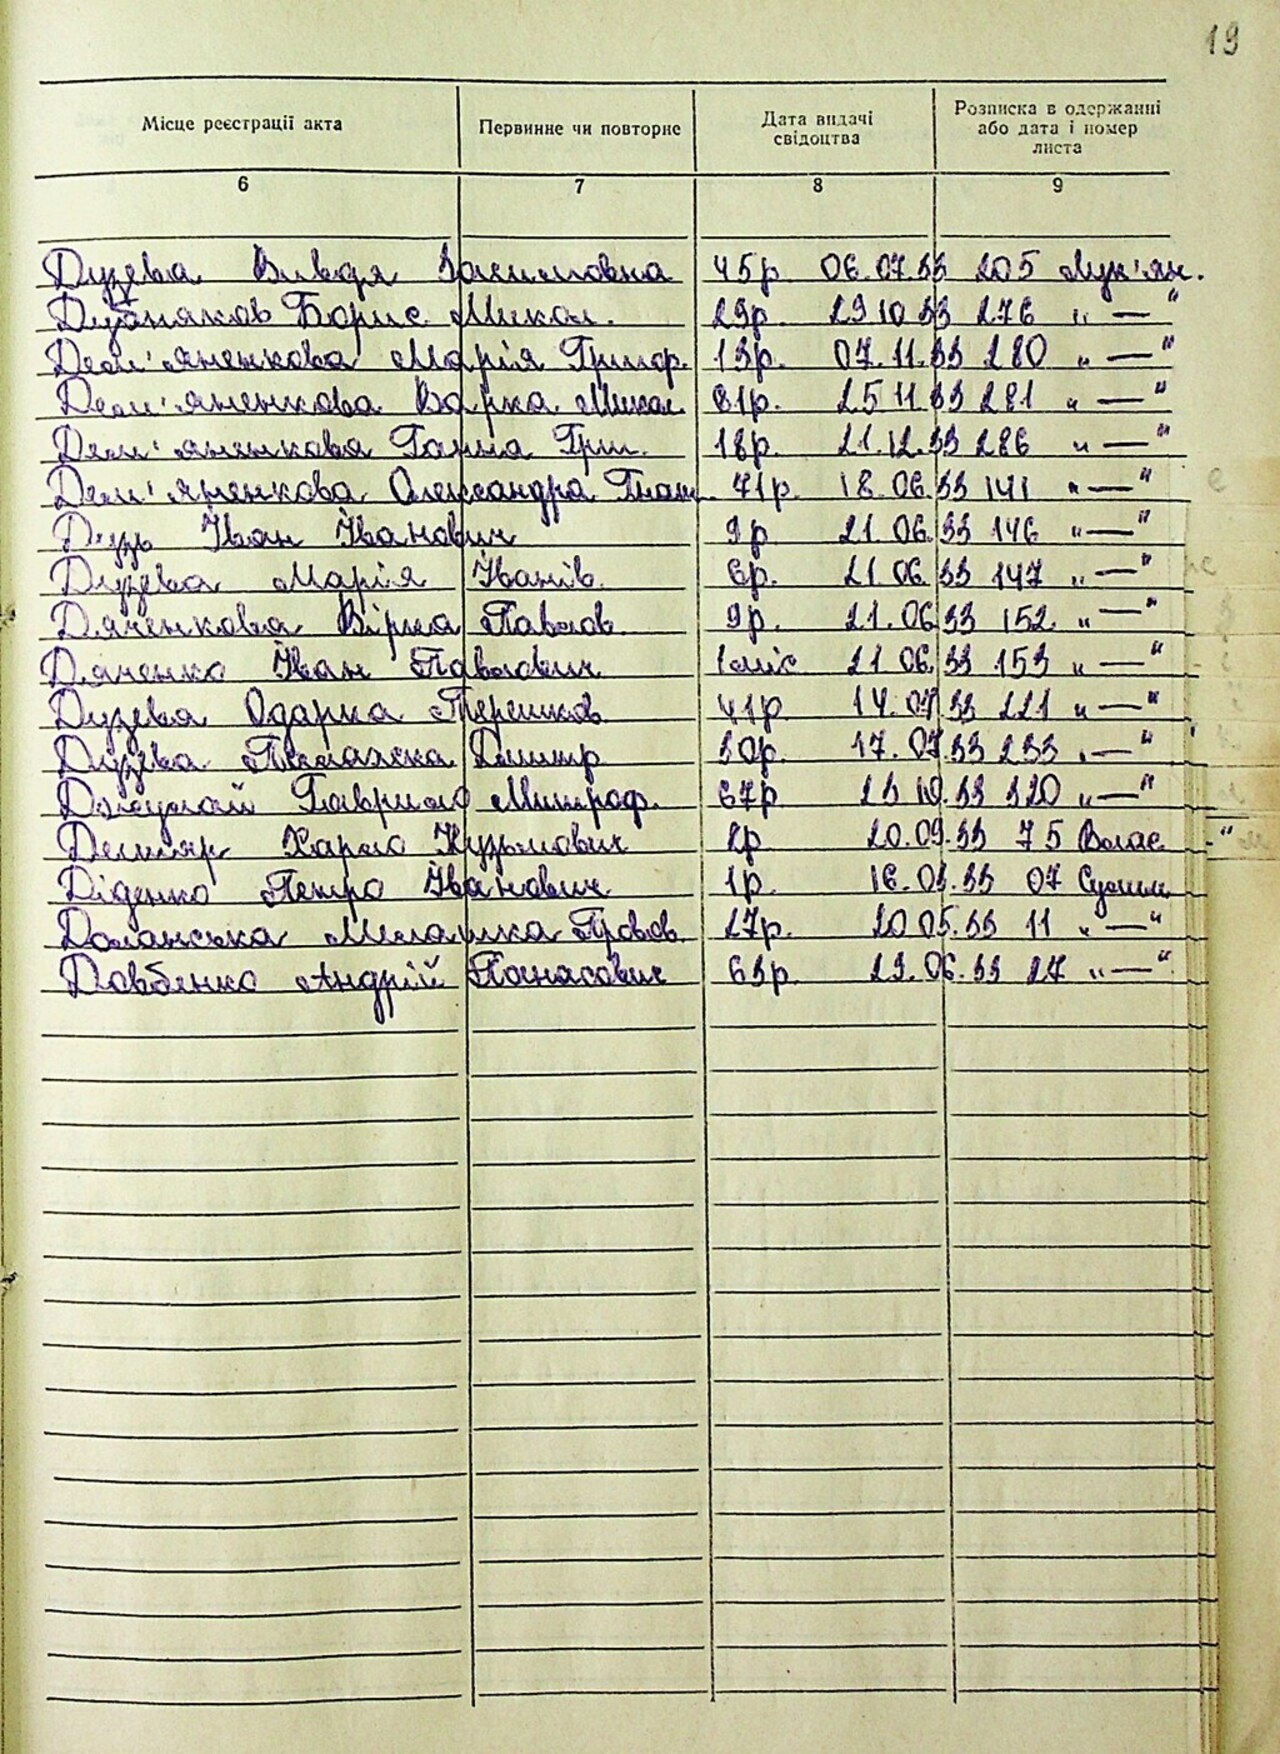 19
Місце реєстрації акта
Первинне чи повторне
Дата видачі свідоцтва
Розписка в одержанні або дата і номер листа
6 7 8 9
Дузева Вивдя Василовна 45р. 06.07.33 205 Лук'ян.
Дубняков Борис Микол. 29р. 29.10 33 276 " — "
Дем'яненкова Марія Григор. 13р. 07.11.33 280 " — "
Дем'яненкова Варка Микол. 61р. 25 11 33 281 " — "
Дем'яненкова Ганна Гри. 18р. 21.12.33 286 " — "
Дем'яненкова Олександра Гнат. 71р. 18.06.33 141 " — "
Дузь Іван Іванович 9р 21 06.33 146 " — "
Дузева Марія Іванів. 6р. 21 06 33 147 " — "
Дяченкова Вірка Павлов. 9р. 21.06 33 152 " — "
Дяченко Іван Павлович 1 міс 21 06.33 153 " — "
Дузева Одарка Терешков. 41р 14.07 33 221 " — "
Дузева Палажка Дмитр 30р. 17.07.33 233 " — "
Джулай Гаврило Митроф. 67р 23 10.33 320 " — "
Дегтяр Харло Кузьмович 2р 20.09.33 75 Влас
Діденко Петро Іванович 1р. 16.03.33 07
Доланська Милашка Пров. 27р. 20 05.33 11 " — "
Довбенко Андрій Панасович 63р. 29.06.33 27 " — "